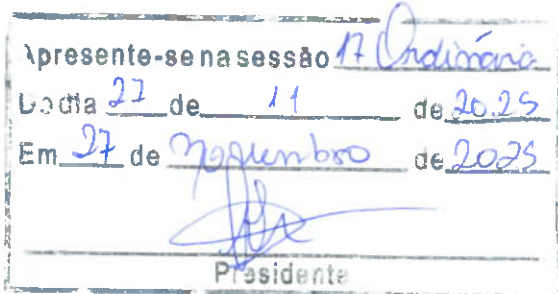 Apresente-se na sessão 17 Ordinária
Do dia 27 de 11 de 2025
Em 27 de novembro de 2025
Presidente